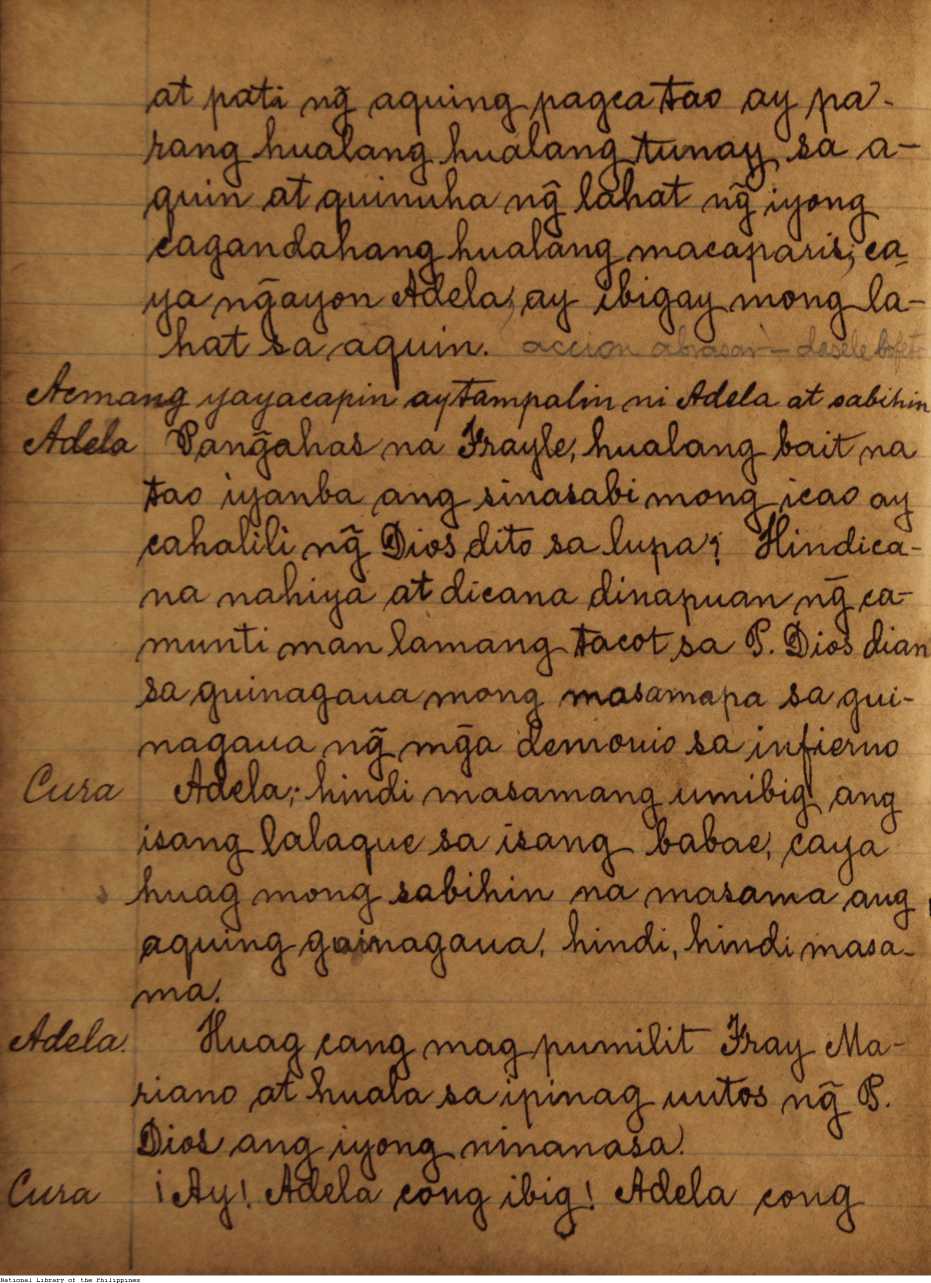 at pati ng̃ aquing pagca tao ay pa-
rang hualang hualang tunay sa a-
quin at quinuha ng̃ lahat ng̃ iyong
cagandahang hualang macaparis; ca
ya ng̃ayon Adela, ay ibigay mong la-
hat sa aquin. accion abrasar - desele bofet
Acmang yayacapin ay tampalin ni Adela at sabihin
Adela Pang̃ahas na Frayle, hualang bait na
tao iyanba ang sinasabi mong icao ay
cahalili ng̃ Dios dito sa lupa? Hindica-
na nahiya at dicana dinapuan ng̃ ca-
munti man lamang tacot sa P. Dios dian
sa guinagaua mong masamapa sa gui-
nagaua ng̃ mg̃a demonio sa infierno
Cura Adela; hindi masamang umibig ang
isang lalaque sa isang babae, caya
huag mong sabihin na masama ang
aquing guinagaua, hindi, hindi masa-
ma.
Adela. Huag cang mag pumilit Fray Ma-
riano at huala sa ipinag uutos ng̃ P.
Dios ang iyong ninanasa.
Cura ¡Ay! Adela cong ibig! Adela cong
National Library of the Philippines